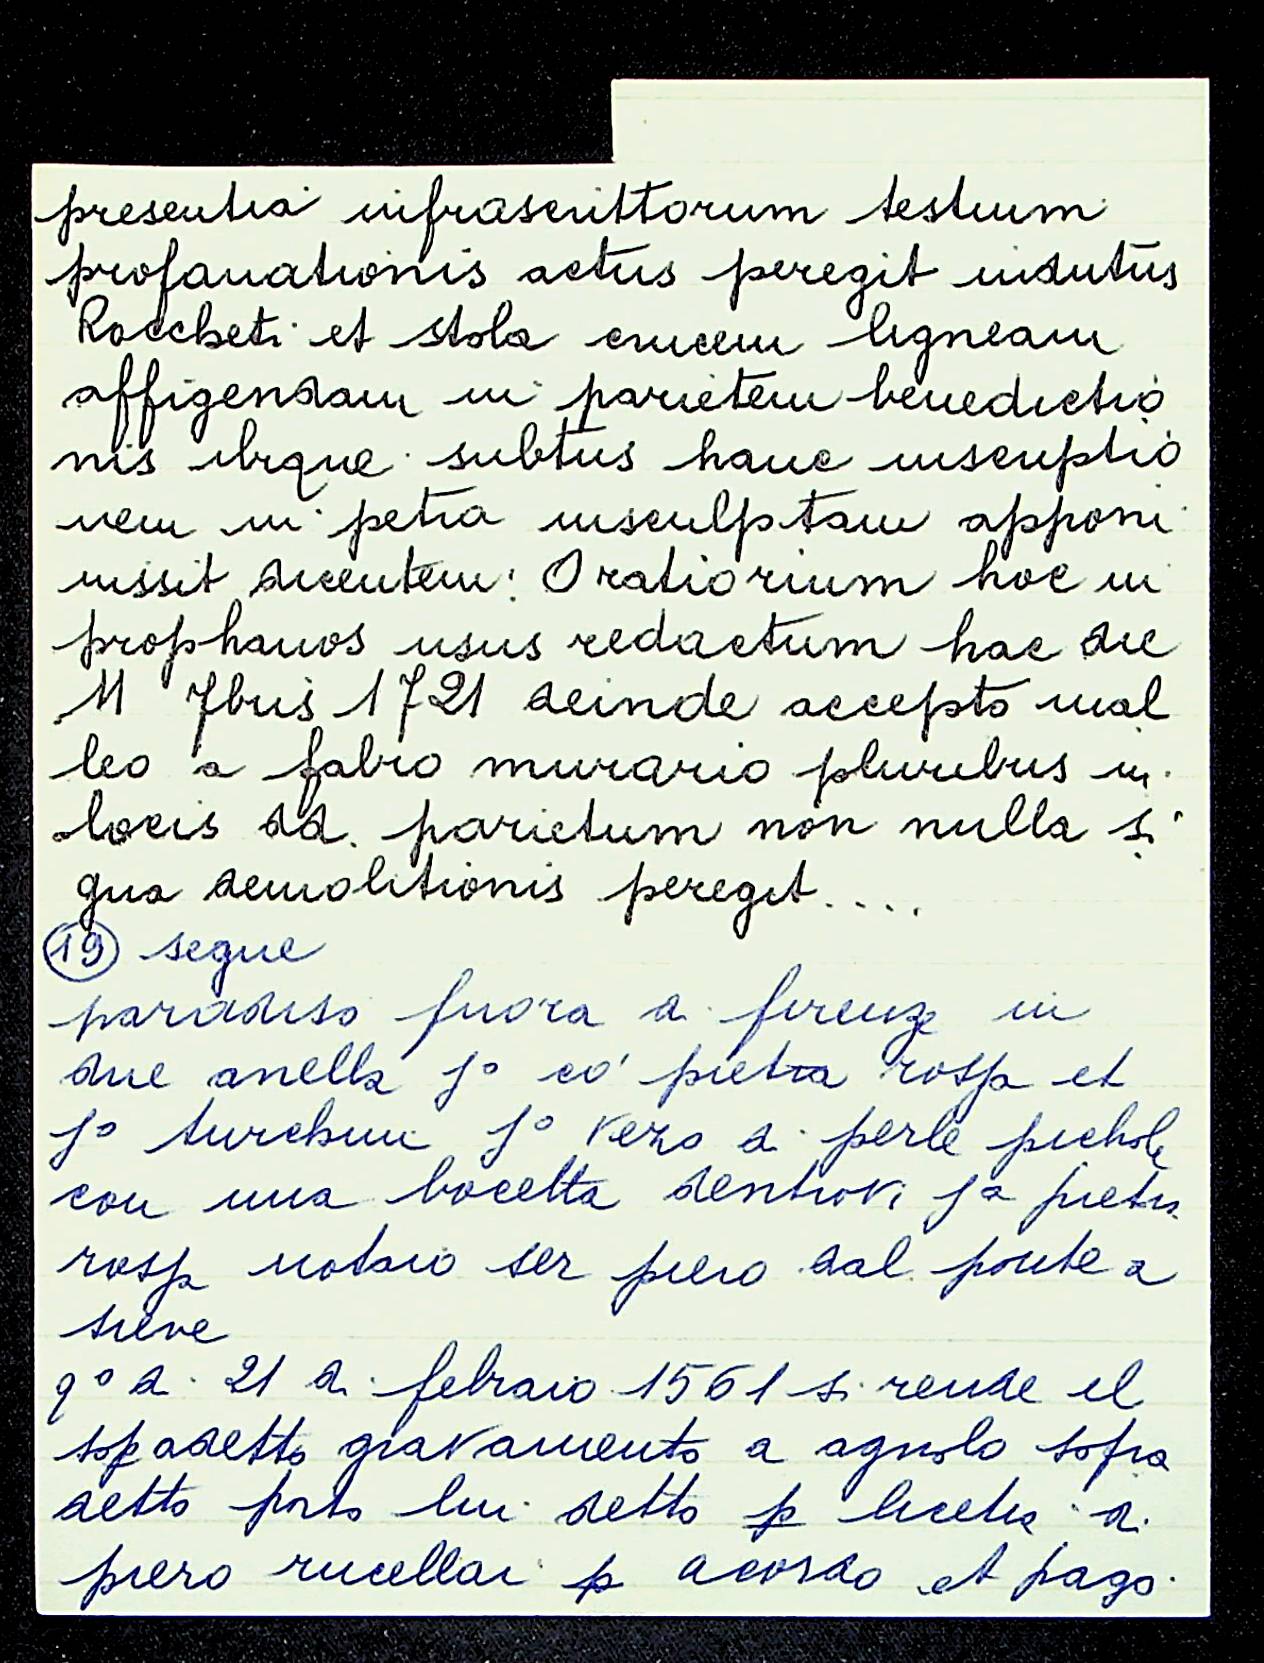 presentia infrascrittorum testium
profanationis actus peregit indutus
Roccheti et stola crucem ligneam
affigendam in parietem benedictio
nis ibique subtus hanc inscriptio
nem in petra insculptam apponi
iussit dicentem: Oratiorium hoc in
prophanos usus redactum hac die
11 7bris 1721 deinde accepto mal
leo a fabro murario pluribus in
locis dd. parietum non nulla si
gna demolitionis peregit....
19 segue
paradiso fuora di firenze in
due anella jº co' pietra rossa et
jº turchine jº vezo di perle pichole
con una bocetta dentrovi jª pietra
rossa notaio ser piero dal ponte a
sieve
qº dì 21 di febraio 1561 si rende el
sopadetto gravamento a agnolo sopra
detto porto lui detto p licetia di
piero rucellai p acordo et pago